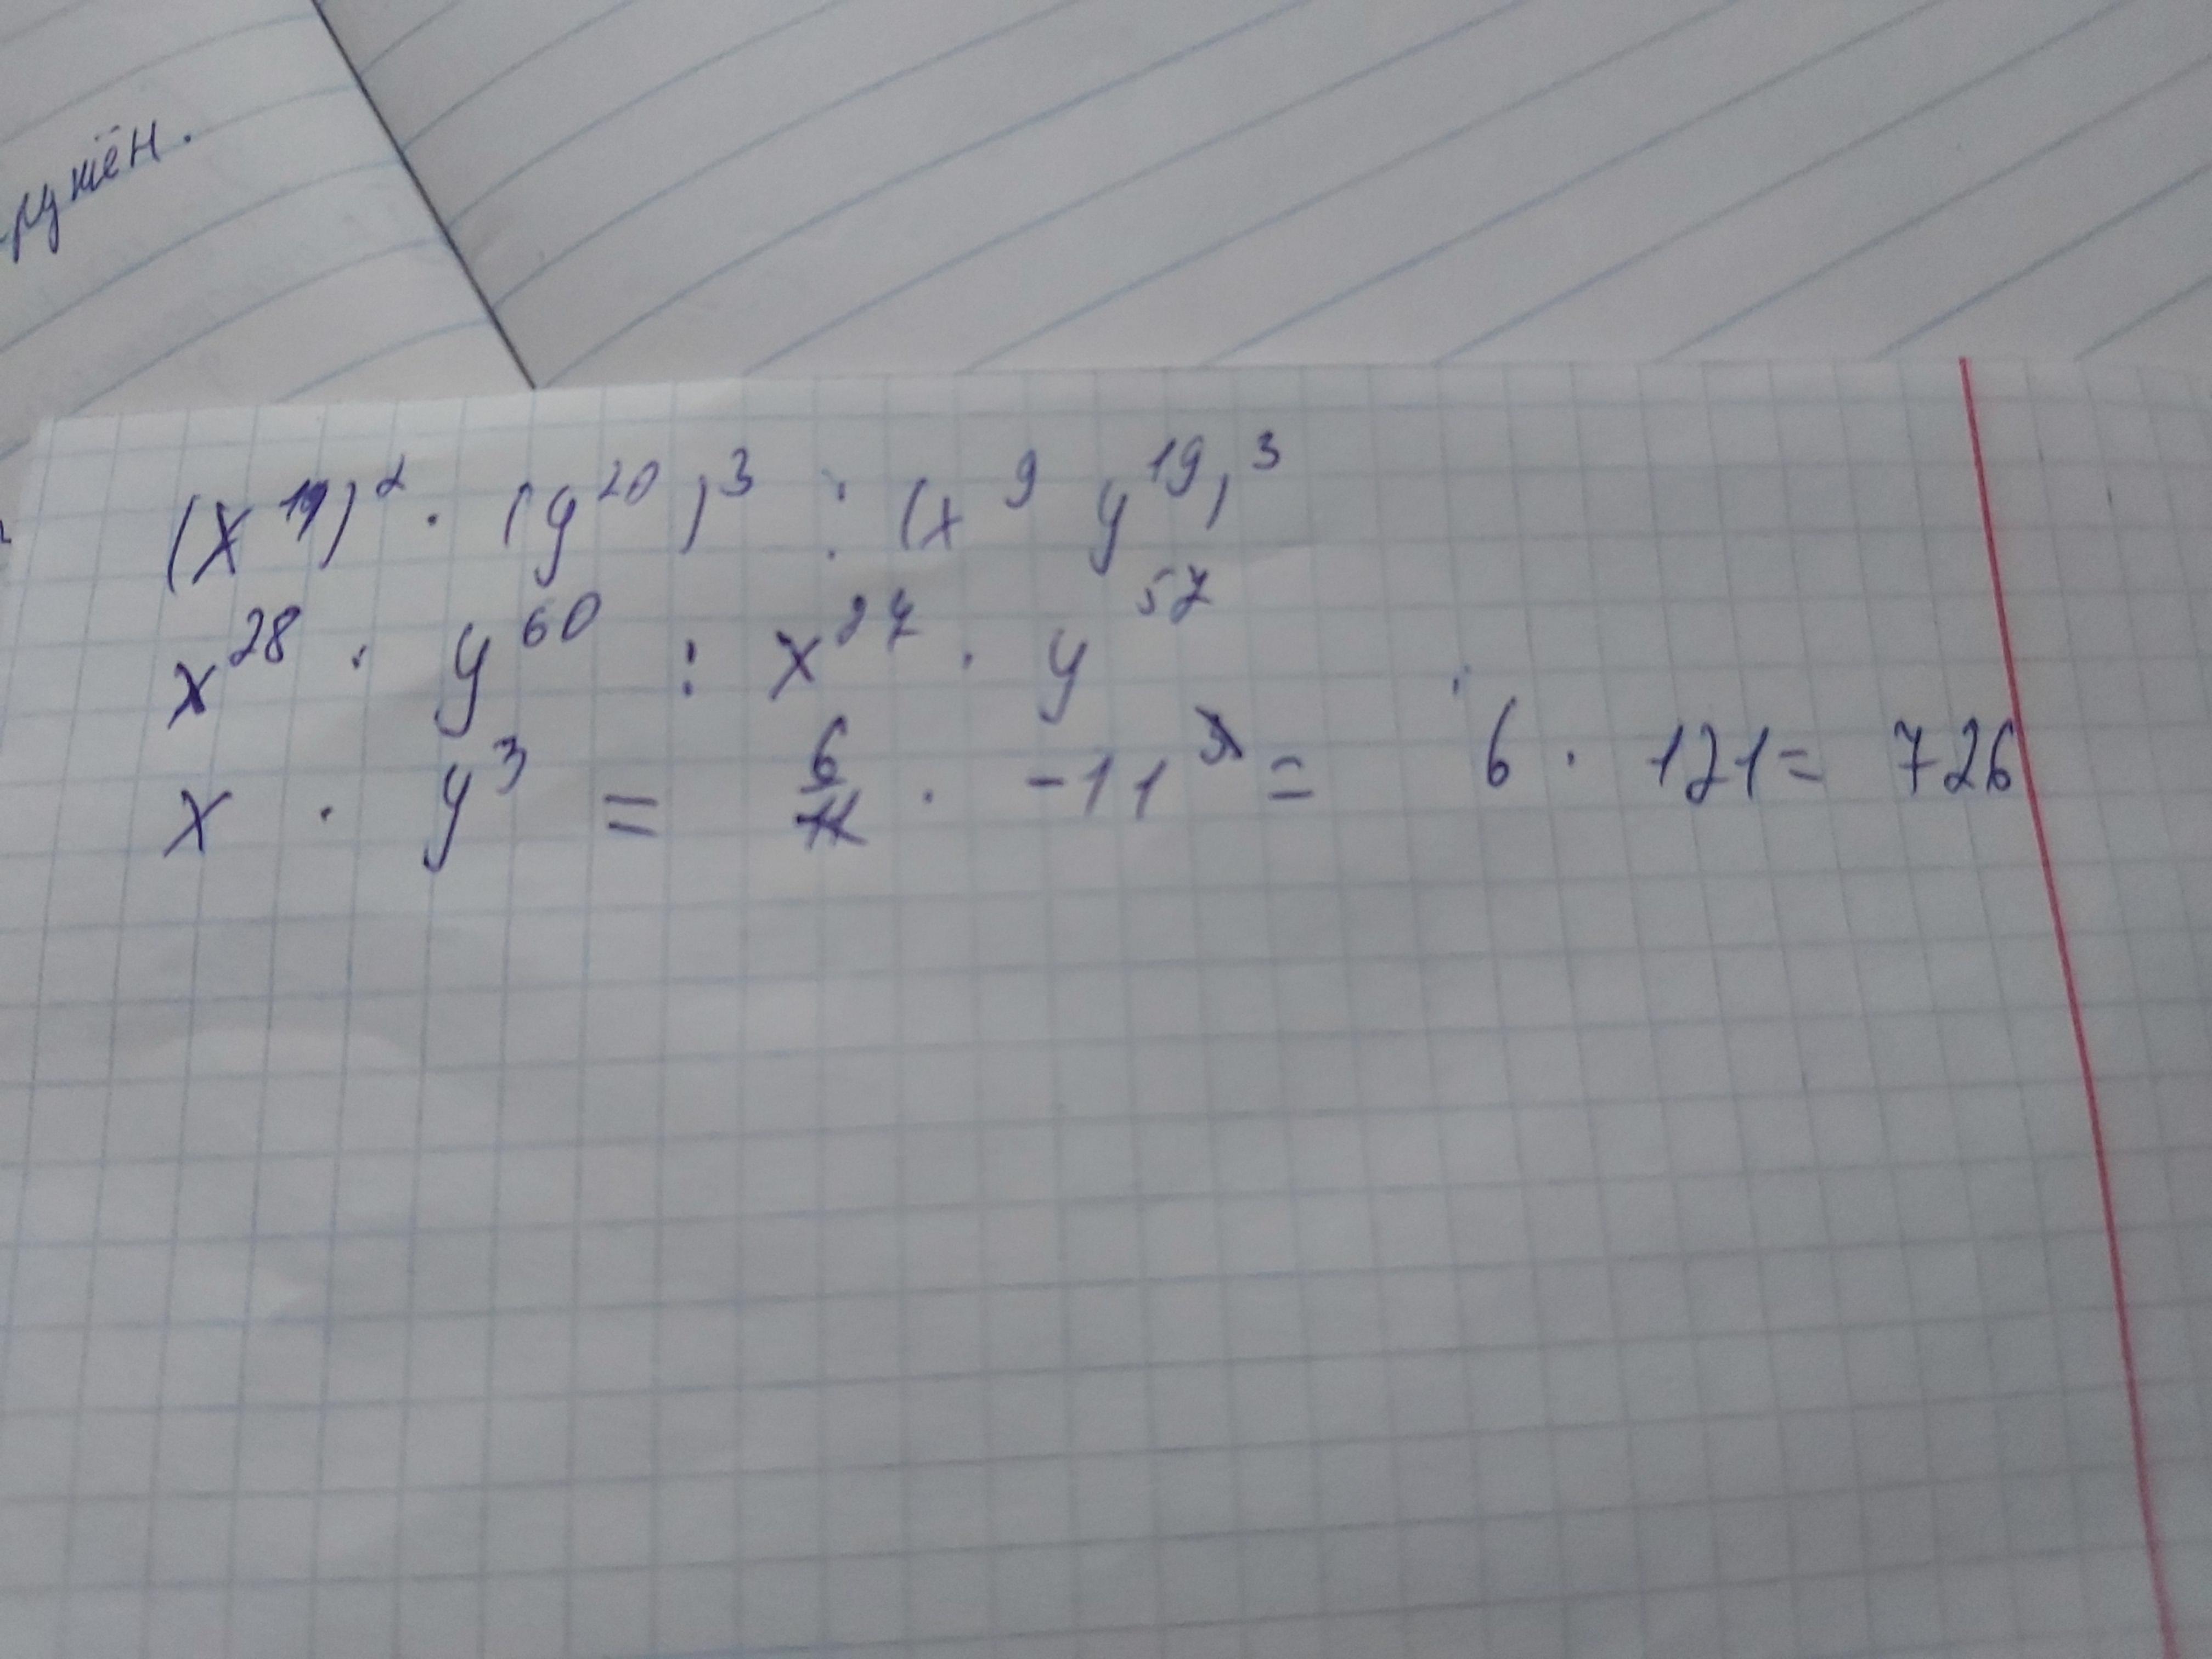 ружён.
(x¹⁴)² · (y²⁰)³ : (x⁹ y¹⁹)³
x²⁸ · y⁶⁰ : x²⁷ · y⁵⁷
x · y³ = 6/11 · -11³ = 6 · 121 = 726